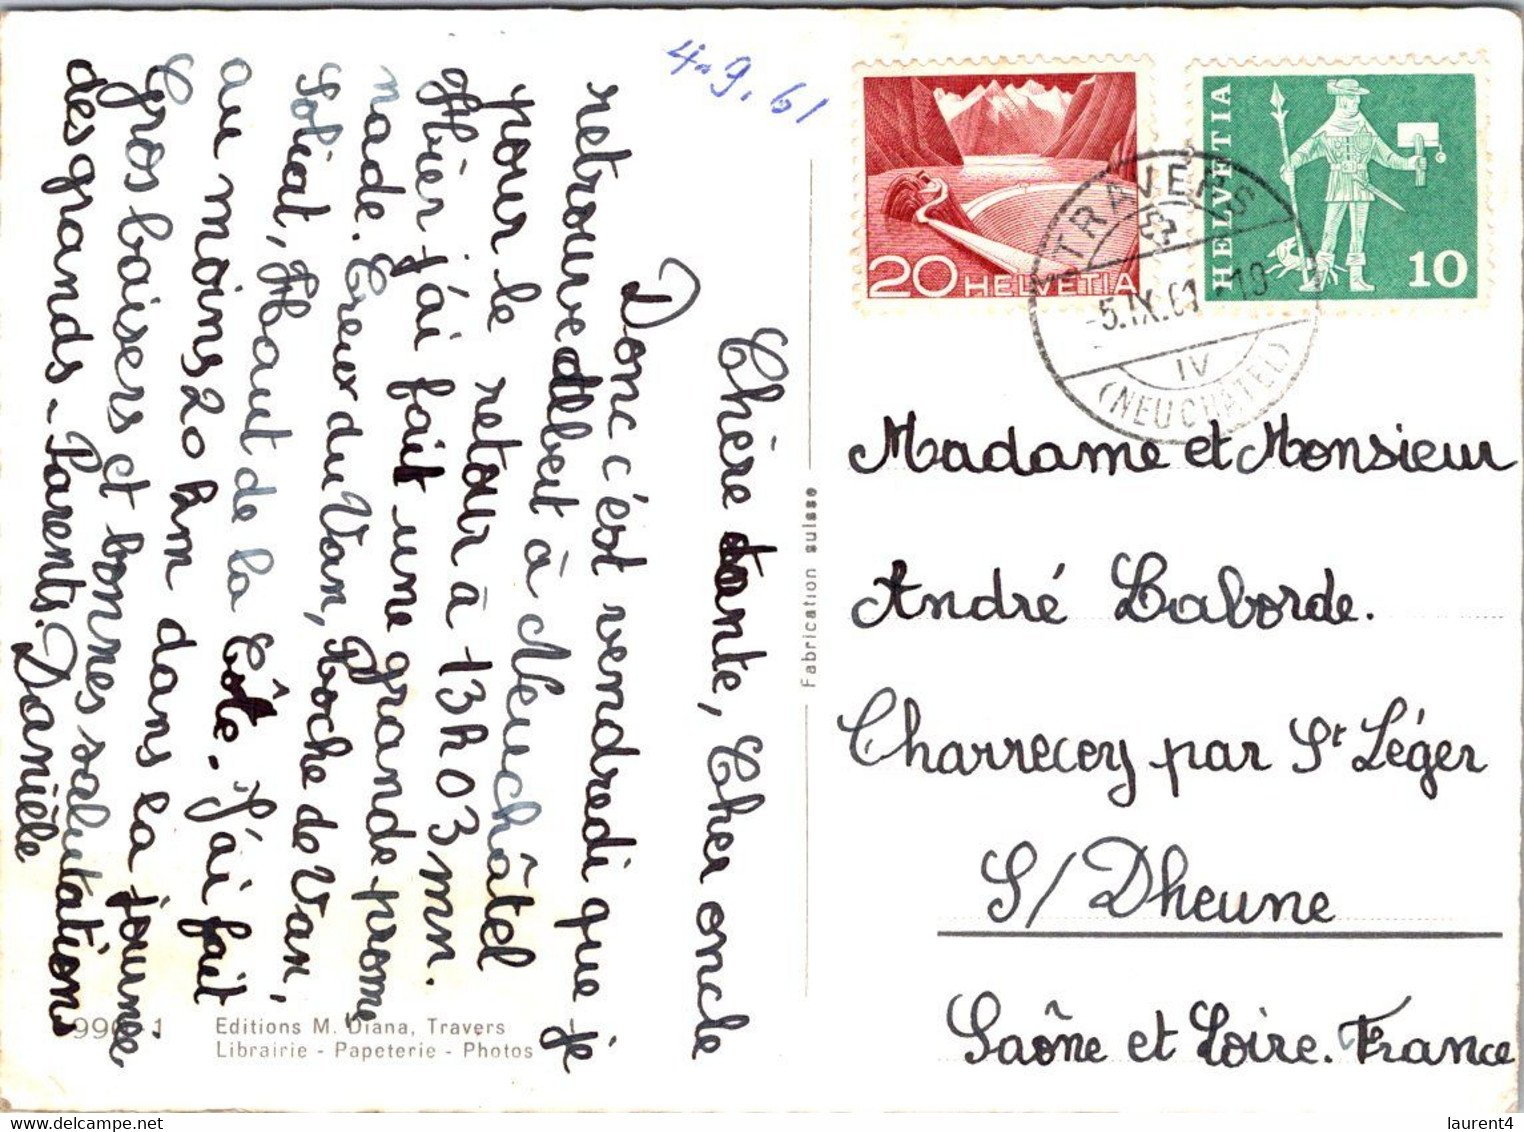 4.9.61
Chère tante, Cher oncle
Donc c'est vendredi que je
retrouve Albert à Neuchâtel
pour le retour à 13h03mn.
Hier j'ai fait une grande prome
nade. Creux du Van, Roche de Van,
Soliat, Haut de la Côte. J'ai fait
au moins 20 km dans la journée
Gros baisers et bonnes salutations
des grands-Parents. Danièle
990-1
Editions M. Diana, Travers
Librairie - Papeterie - Photos
Fabrication suisse
20 HELVETIA
HELVETIA 10
TRAVERS
-5.IX.61-19
IV
(NEUCHÂTEL)
Madame et Monsieur
André Laborde.
Charrecey par St Léger
S/Dheune
Saône et Loire. France
laurent4